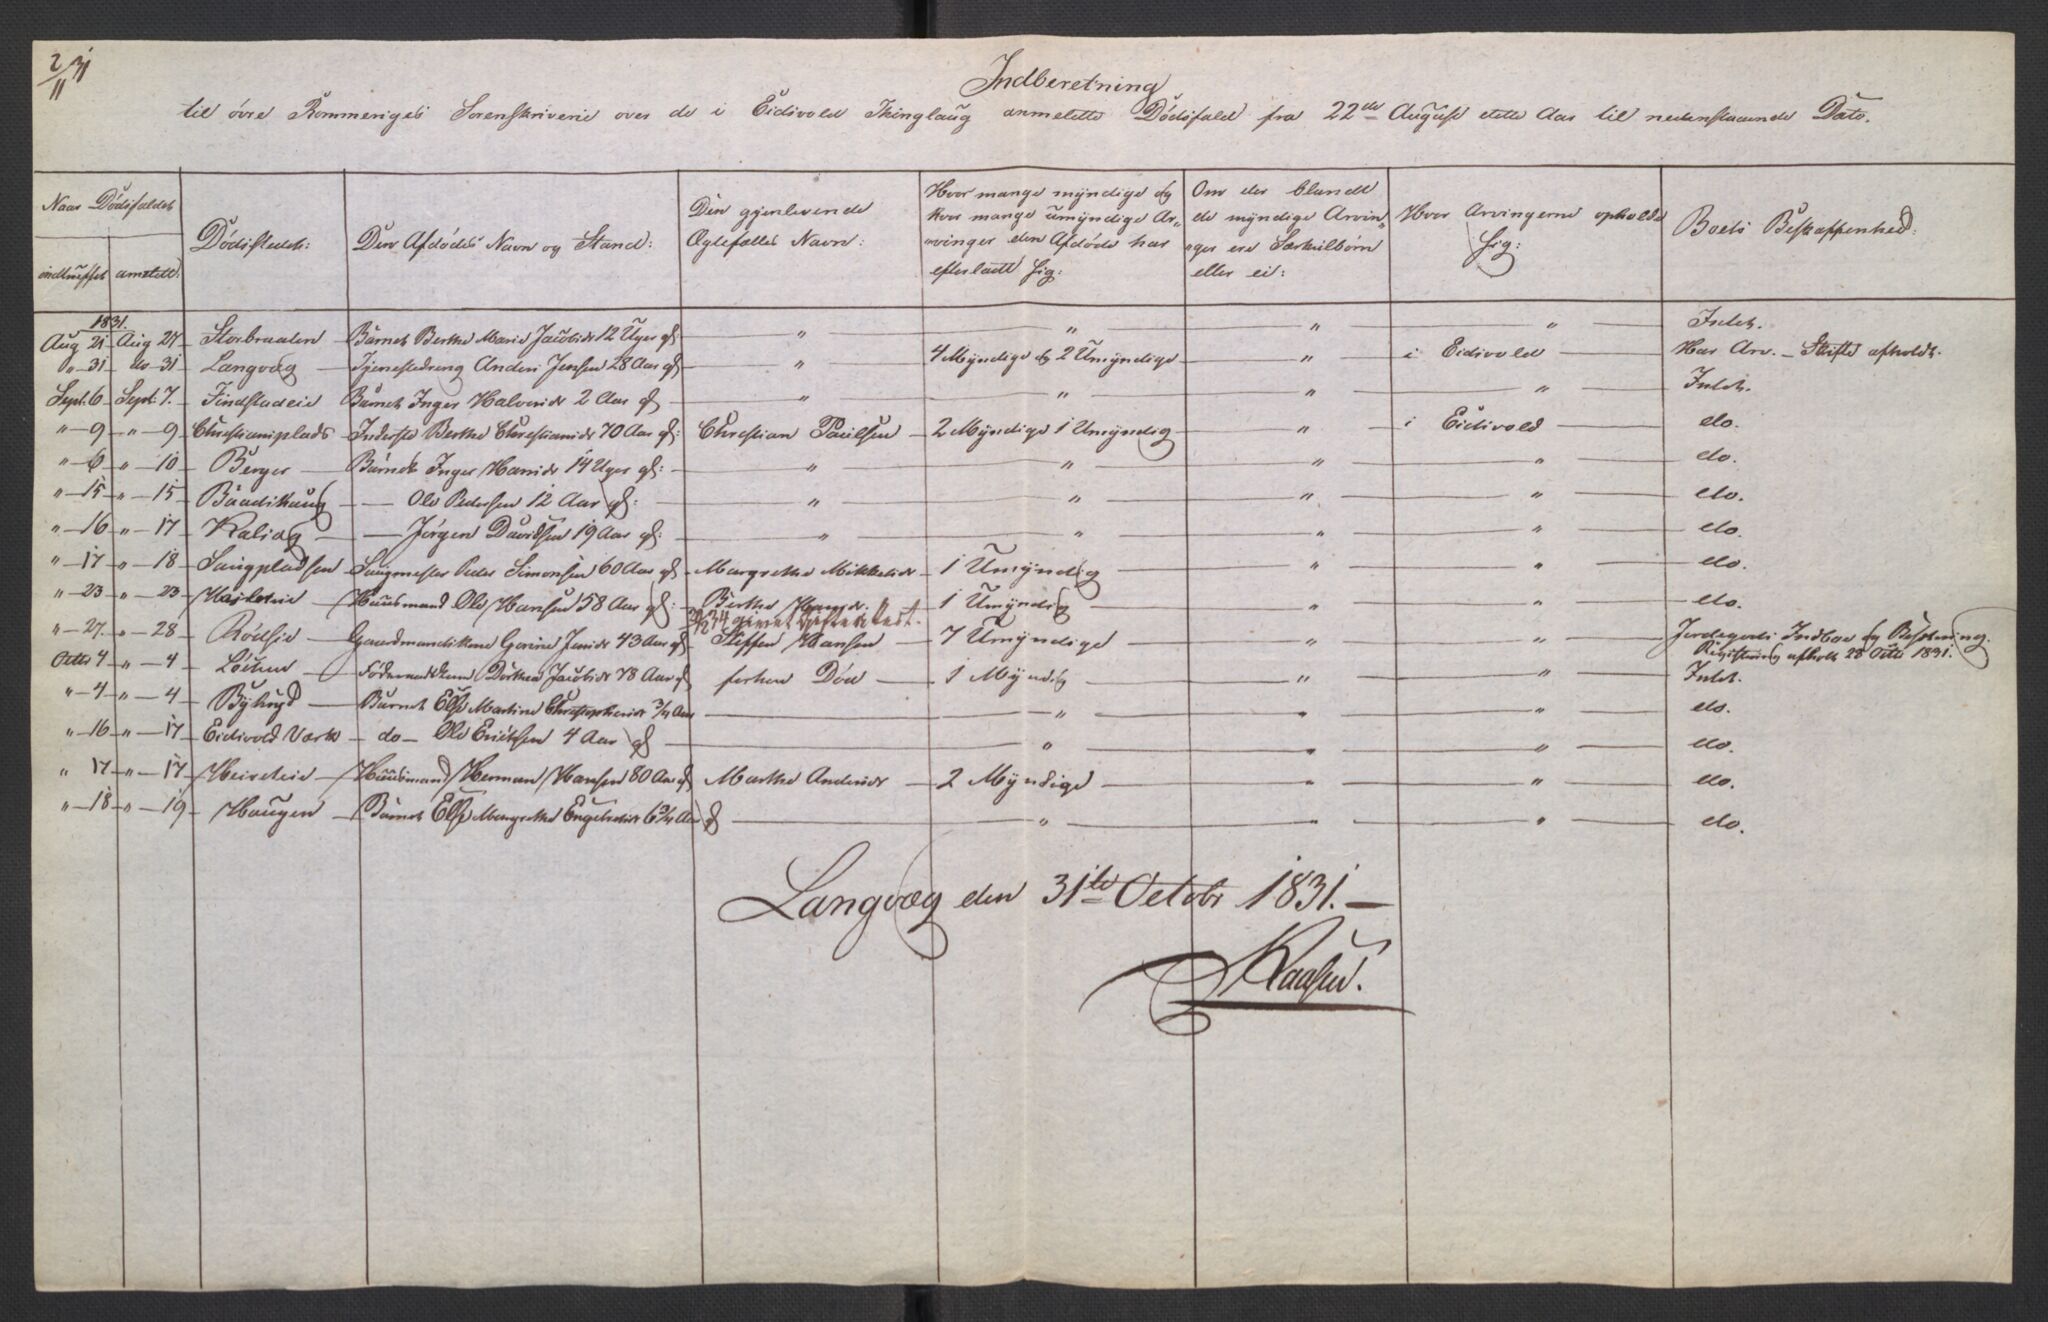 2/11 31
Indberetning
til övre Rommeriges Sorenskriverie over de i Eidsvold Thinglaug anmeldte Dödsfald fra 22de August dette Aar til nedenstaaende Dato.
Naar Dödsfaldet
indtruffet anmeldt:
Dödsstedet:
Den Afdödes Navn og Stand:
Den gjenlevende
Ægtefælles Navn:
Hvor mange myndige og
hvor mange umyndige Ar-
vinger den Afdöde har
efterladt sig:
Om der blandt
de myndige Arvin-
ger ere Særkuldsbörn
eller ei:
Hvor Arvingerne opholde
sig:
Boets Beskaffenhed:
1831.
Aug 21 Aug 27 Storbraaten Barnet Berthe Marie Jacobsdr 12 Uger gl: " " " " Intet.
" 31 do 31 Langvæg Tjenestedreng Anders Jensen 28 Aar gl " 4 Myndige og 2 Umyndige " i Eidsvold Har Arv. - Skifte afholdt.
Sept. 6 Sept: 7. Findstadeie Barnet Inger Halvorsdr 2 Aar gl " " " " Intet.
" 9 " 9 Christiansplads Inderste Berthe Christiansdr 70 Aar gl: Christian Paulsen 2 Myndige 1 Umyndig " i Eidsvold do.
" 6 " 10 Berger Barnet Inger Hansdr 14 Uger gl: " " " " do.
" 15 " 15 Baadshaug — Ole Pedersen 12 Aar gl: " " " " do.
" 16 " 17 — Jörgen Davidsen 19 Aar gl: " " " " do.
" 17 " 18 Saugpladsen Saugmester Peder Simonsen 60 Aar gl Margrethe Mikkelsdr 1 Umyndig " " do.
" 23 " 23 Huusmand Ole Hansen 58 Aar gl: Berthe Hansdr. 1 Umyndig " " do.
" 27. " 28 Rödsie Gaardmandskone Gorine Jensdr 43 Aar gl Steffen Hansen 7 Umyndige " " Jordegods Indboe og Besætning.
Registering afholdt 28 Octbr 1831.
Octbr 4 " 4 Dorthea Jacobsdr 78 Aar gl forhen Död 1 Myndig " " Intet.
" 4 " 4 Byhryd Barnet Else Martine Christophersdr 3/4 Aar " " " do.
" 16 " 17 Eidsvold Værk do Ole Erichsen 4 Aar gl " " " do.
" 17 " 17 Huusmand Herman Hansen 80 Aar gl Marthe Andersdr 2 Myndige " " do.
" 18 " 19 Haugen Barnet Else Margrethe Engebretsdr 6 3/4 Aar gl " " " do.
Langvæg den 31te Octobr 1831.
Kaasen.